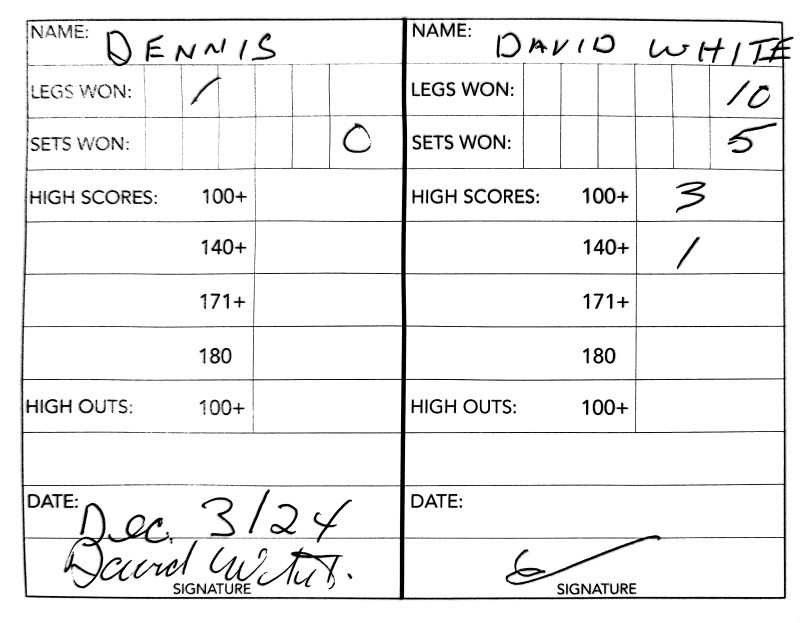 NAME: DENNIS
LEGS WON: /
SETS WON: 0
HIGH SCORES: 100+
140+
171+
180
HIGH OUTS: 100+
DATE: Dec. 3/24
David
SIGNATURE
NAME: DAVID WHITE
LEGS WON: 10
SETS WON: 5
HIGH SCORES: 100+ 3
140+ 1
171+
180
HIGH OUTS: 100+
DATE:
SIGNATURE